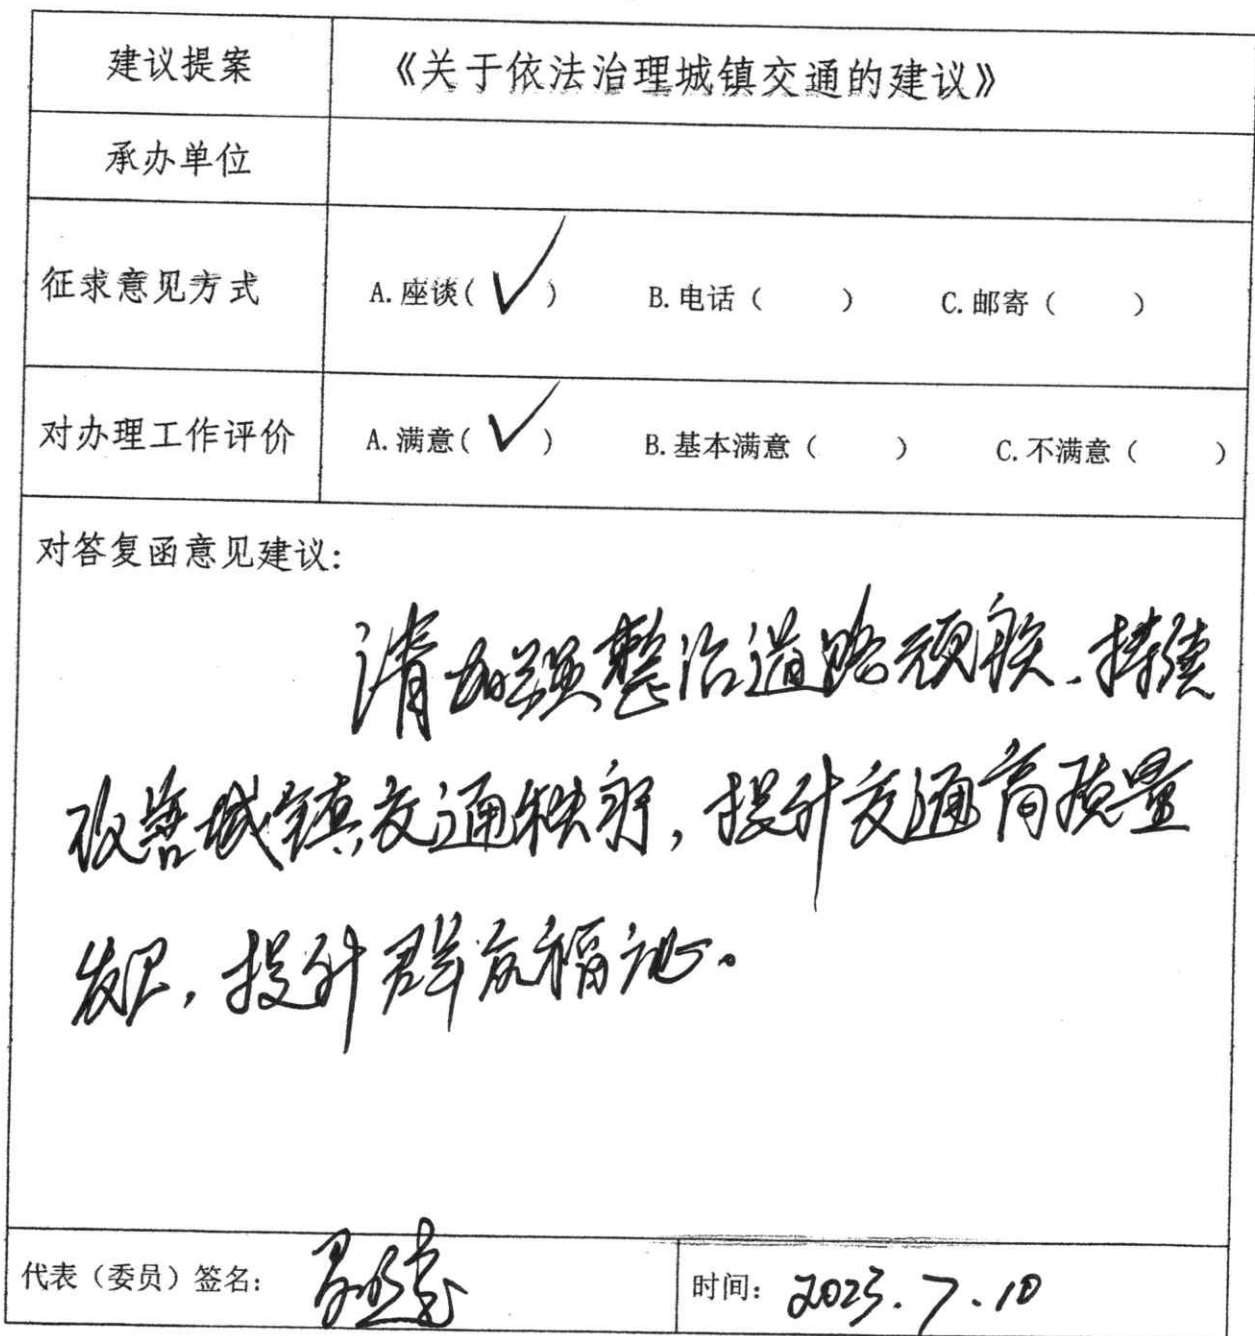 建议提案 《关于依法治理城镇交通的建议》
承办单位
征求意见方式 A.座谈(✓) B.电话（ ） C.邮寄（ ）
对办理工作评价 A.满意(✓) B.基本满意（ ） C.不满意（ ）
对答复函意见建议:
请加强整治道路顽疾、持续
改善城镇交通秩序，提升交通高质量
发展，提升群众福祉。
代表（委员）签名: 时间: 2023.7.10